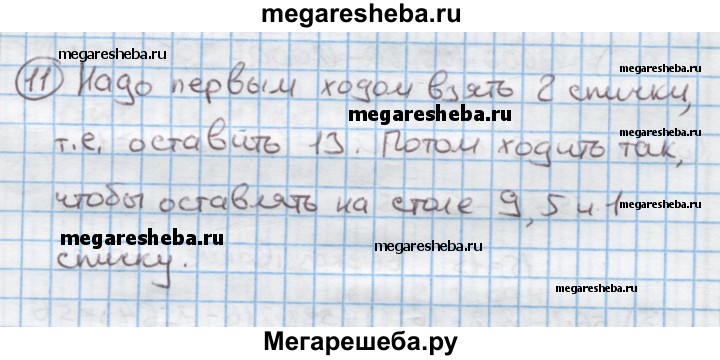 megaresheba.ru
megaresheba.ru
megaresheba.ru
11 Надо первым ходом взять 2 спички,
megaresheba.ru
т.е. оставить 13. Потом ходить так,
megaresheba.ru
чтобы оставлять на столе 9, 5 и 1
megaresheba.ru
megaresheba.ru
megaresheba.ru
megaresheba.ru
спичку.
Мегарешеба.ру